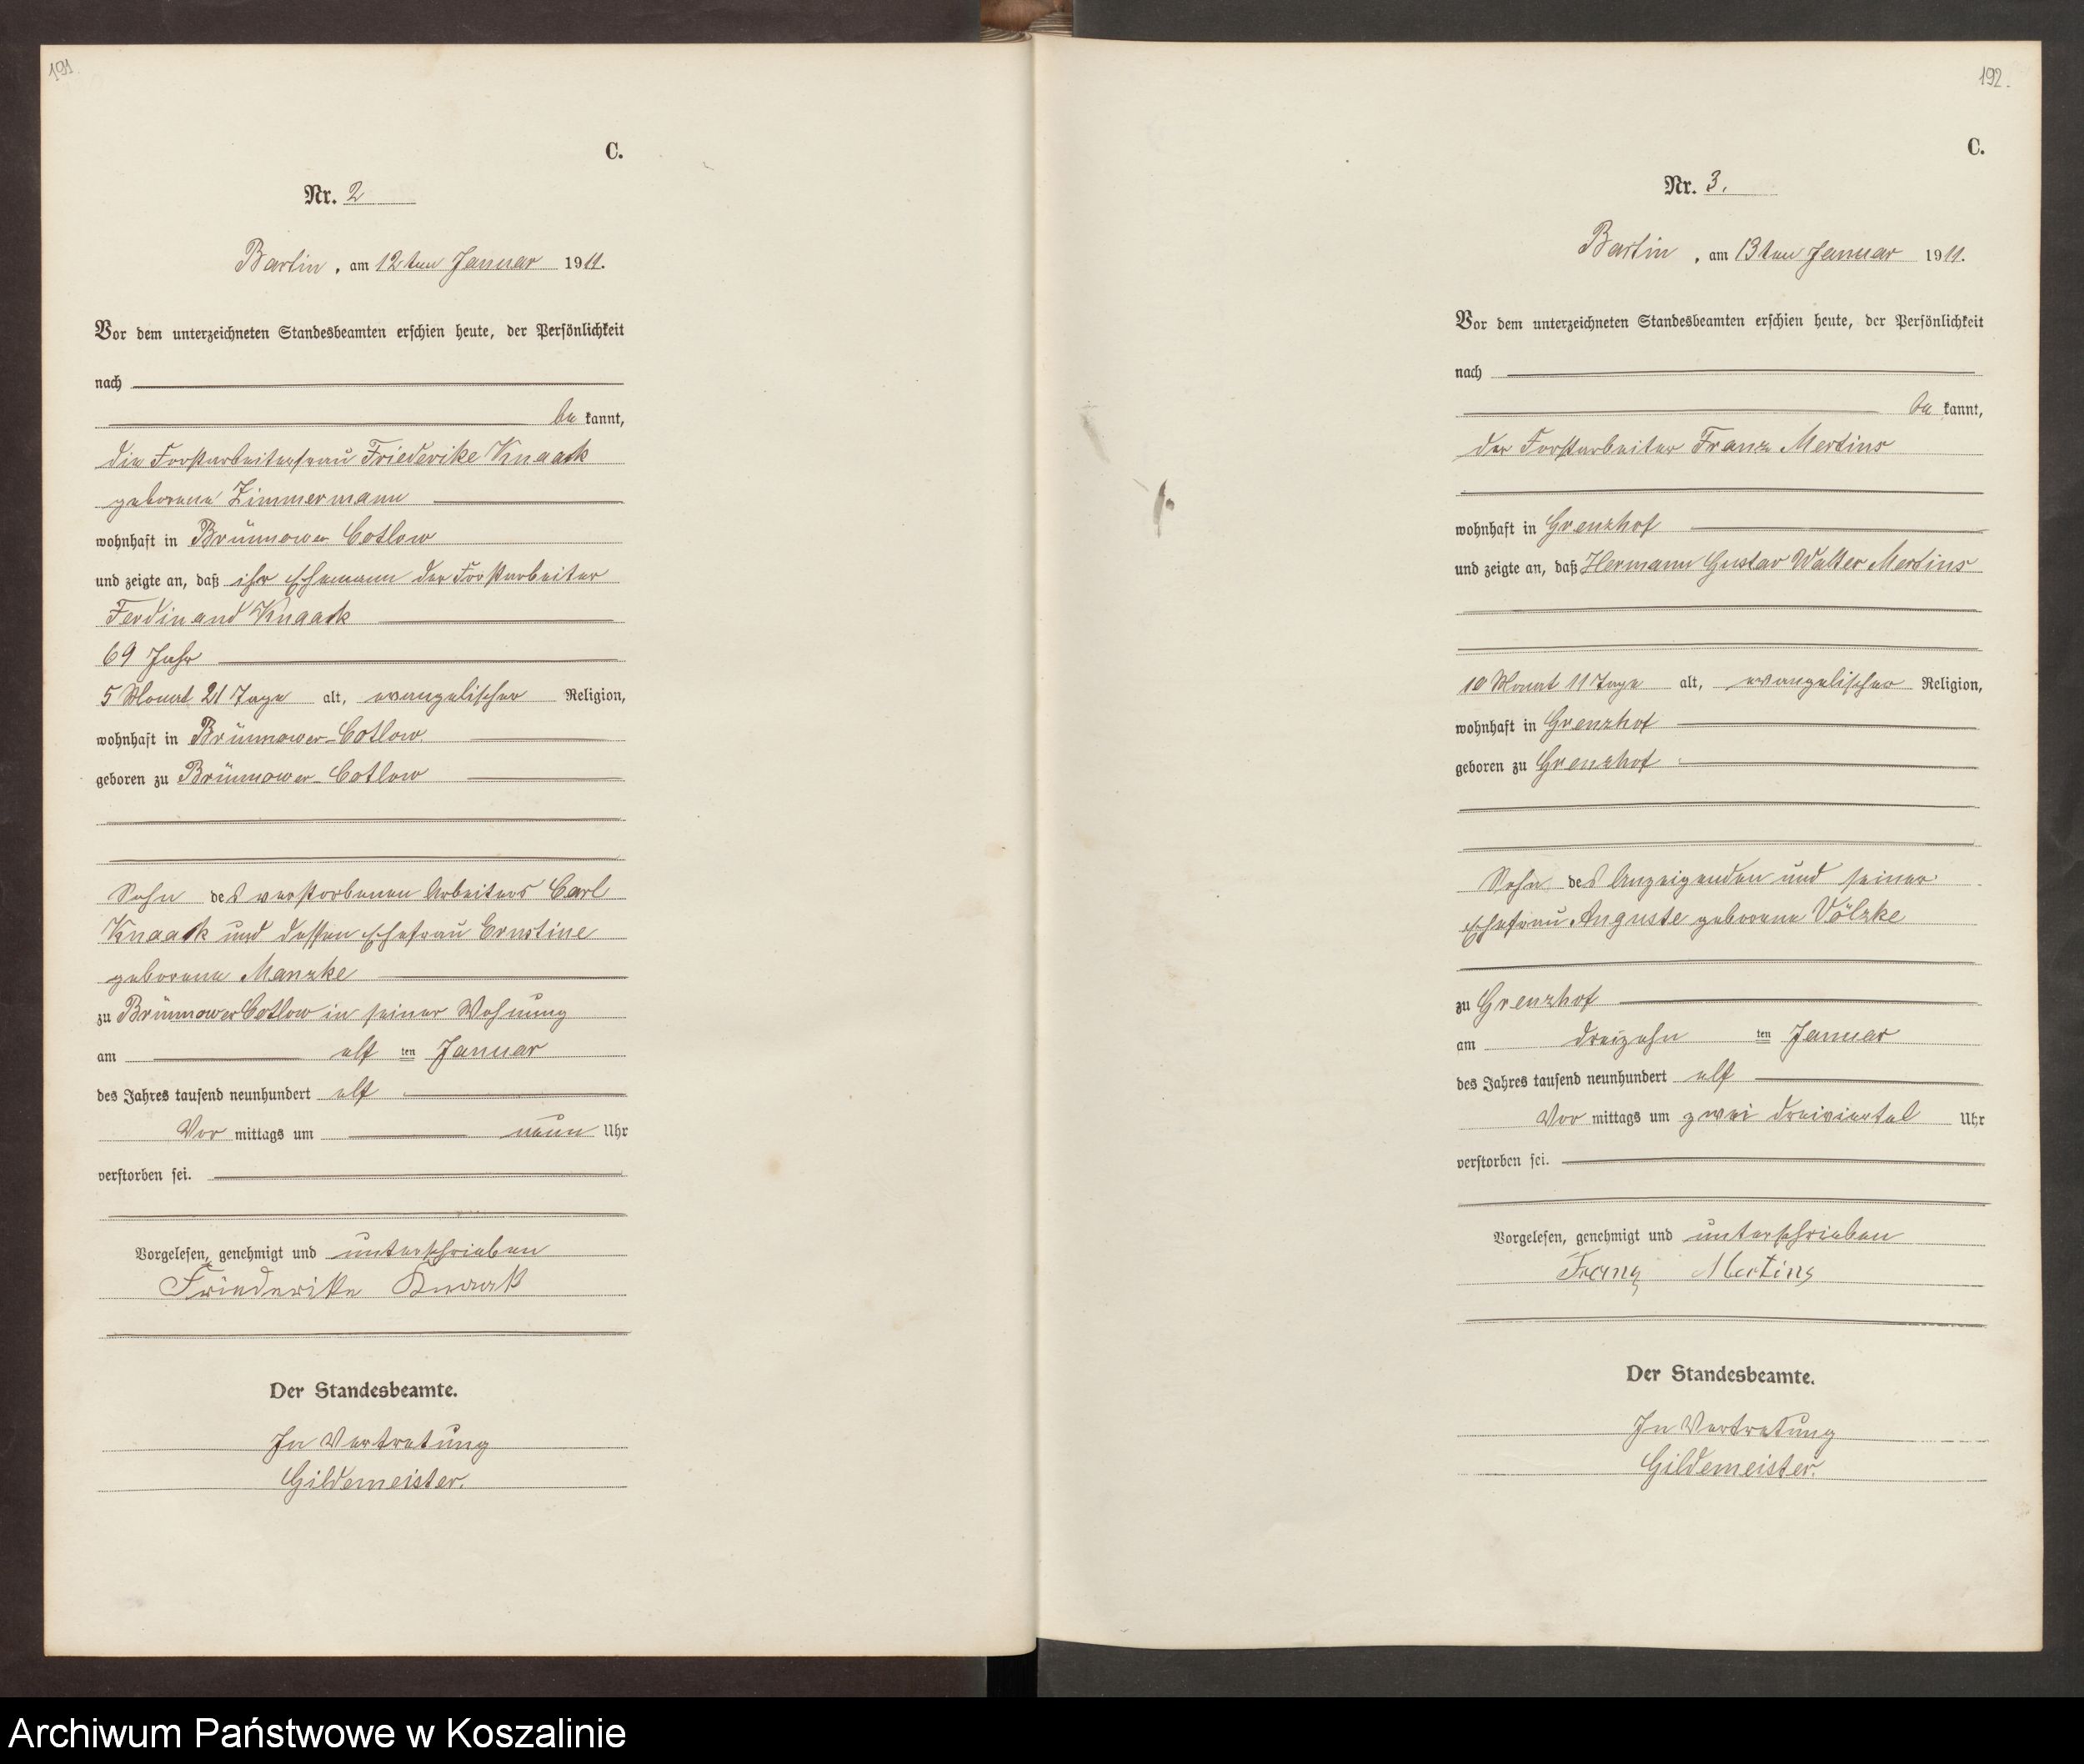 191
C.
Nr. 2
Bartin, am 12ten Januar 1911.
Vor dem unterzeichneten Standesbeamten erschien heute, der Persönlichkeit
nach
be kannt,
die Forstarbeiterfrau Friederike Knaack
geborene Zimmermann
wohnhaft in Brünnower Cotlow
und zeigte an, daß ihr Ehemann der Forstarbeiter
Ferdinand Knaack
69 Jahr
5 Monat 21 Tage alt, evangelischer Religion,
wohnhaft in Brünnower-Cotlow
geboren zu Brünnower-Cotlow
Sohn des verstorbenen Arbeiters Carl
Knaack und dessen Ehefrau Ernstine
geborene Manzke
zu Brünnower Cotlow in seiner Wohnung
am elf ten Januar
des Jahres tausend neunhundert elf
Vor mittags um neun Uhr
verstorben sei.
Vorgelesen, genehmigt und unterschrieben
Friederike Knaak
Der Standesbeamte.
In Vertretung
Gildemeister.
192.
C.
Nr. 3.
Bartin, am 13ten Januar 1911.
Vor dem unterzeichneten Standesbeamten erschien heute, der Persönlichkeit
nach
be kannt,
der Forstarbeiter Franz Mertins
wohnhaft in Grenzhof
und zeigte an, daß Hermann Gustav Walter Mertins
10 Monat 11 Tage alt, evangelischer Religion,
wohnhaft in Grenzhof
geboren zu Grenzhof
Sohn des Anzeigenden und seiner
Ehefrau Auguste geborene Völzke
zu Grenzhof
am dreizehn ten Januar
des Jahres tausend neunhundert elf
Vor mittags um zwei dreiviertel Uhr
verstorben sei.
Vorgelesen, genehmigt und unterschrieben
Franz Mertins
Der Standesbeamte.
In Vertretung
Gildemeister.
Archiwum Państwowe w Koszalinie